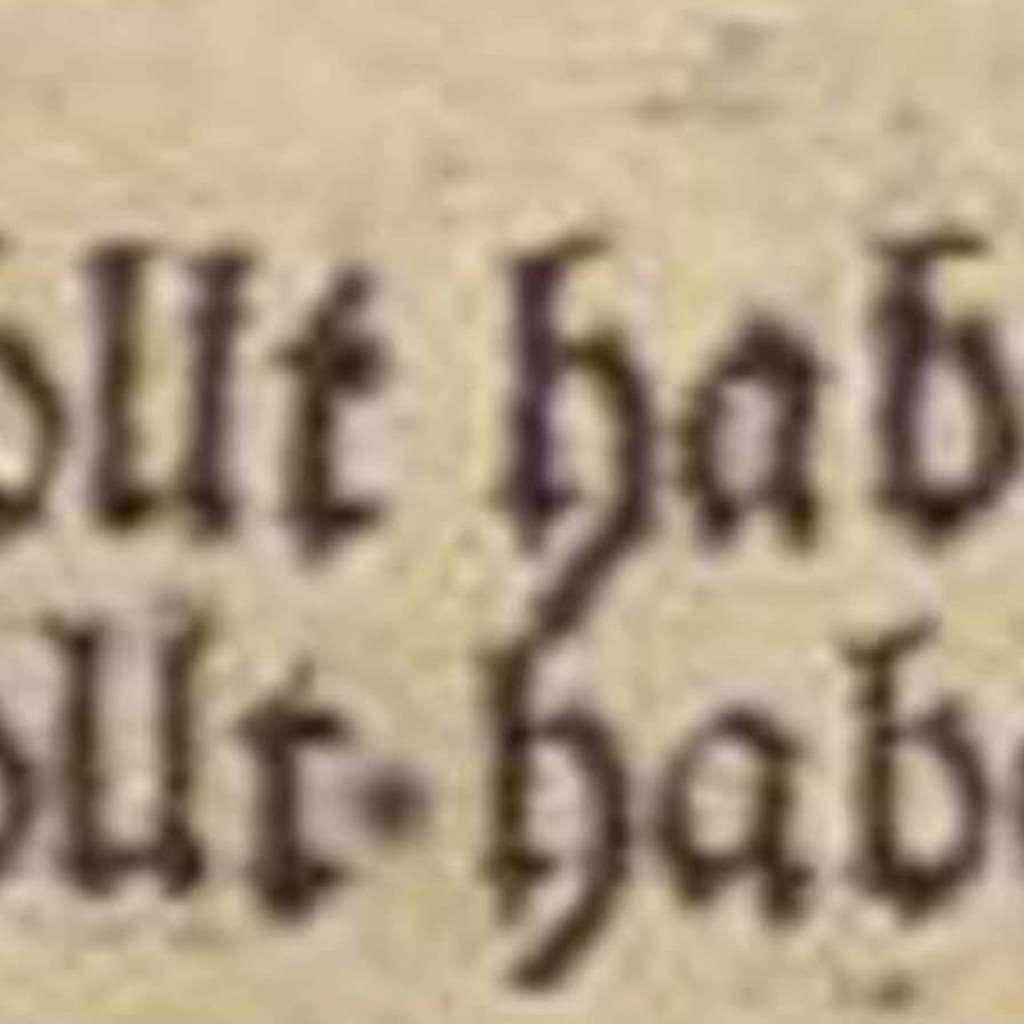 ollt hab
ollt · habe